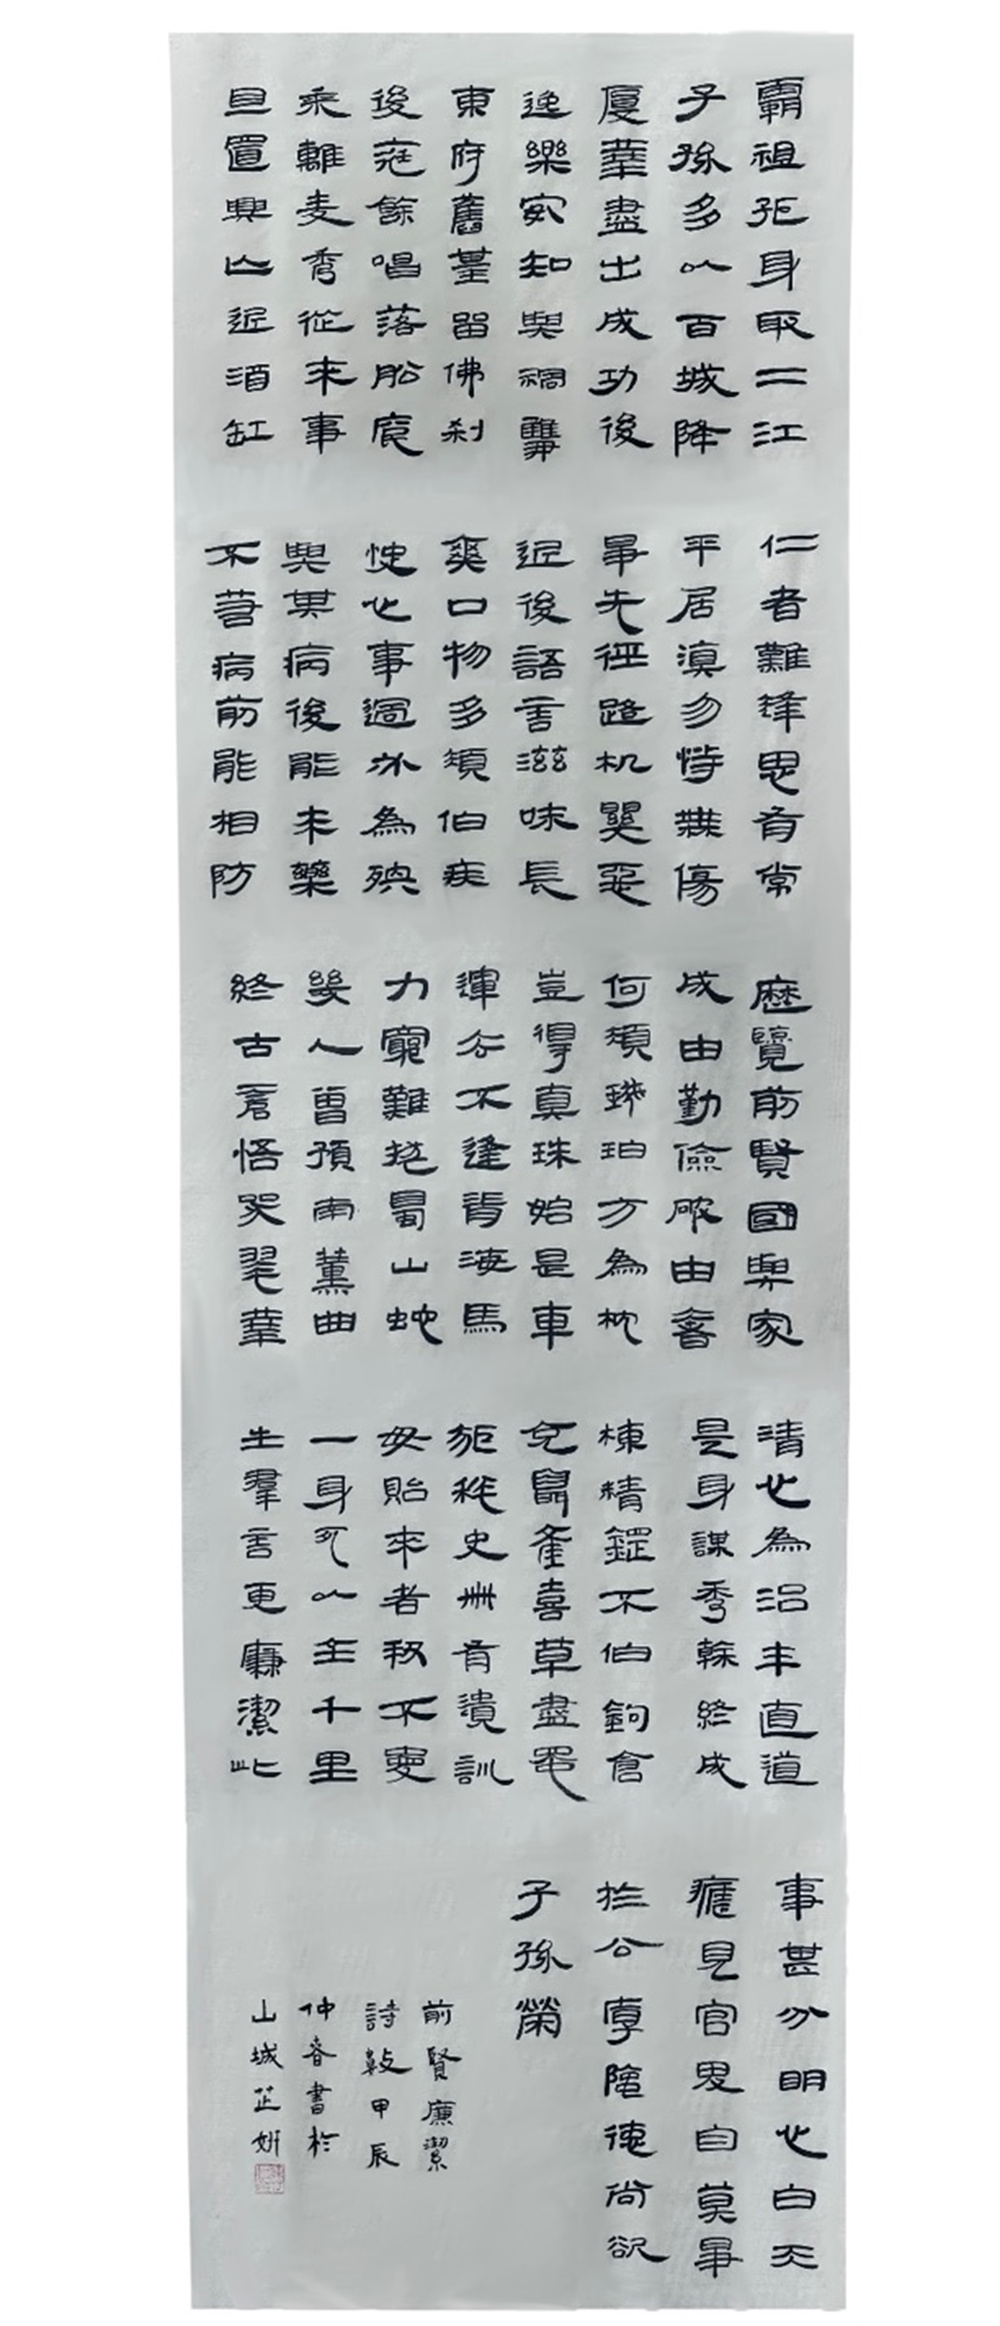 霸祖孤身取二江
子孫多以百城降
廈華盡出成功後
逸樂安知與禍雙
東府舊基留佛刹
後庭餘唱落船窗
黍離麦秀從来事
且置興亡近酒缸
仁者難逢思有常
平居慎勿恃無傷
爭先徑路机關惡
近後語言滋味長
爽口物多須作疾
快心事過必為殃
與其病後能求藥
不若病前能相防
歷覽前賢國與家
成由勤儉破由奢
何須琥珀方為枕
豈得真珠始是車
運去不逢青海馬
力窮難拔蜀山蛇
幾人曾預南薰曲
終古蒼梧哭翠華
清心為治本直道
是身謀秀幹終成
棟精鋼不作鉤倉
充鼠雀喜草盡兔
狐愁史册有遺訓
毋貽來者羞不
一身可以生千里
生羣言更廉潔此
事甚分明心白天
見官自莫爭
於公厚陰德尚欲
子孫榮
前賢廉潔
詩數甲辰
仲春書於
山城芷妍